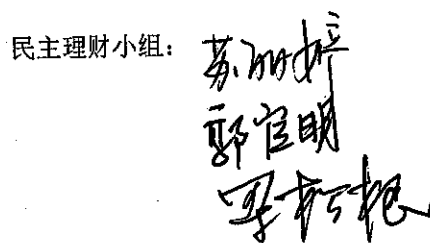 民主理财小组：苏丽婷
郭官明